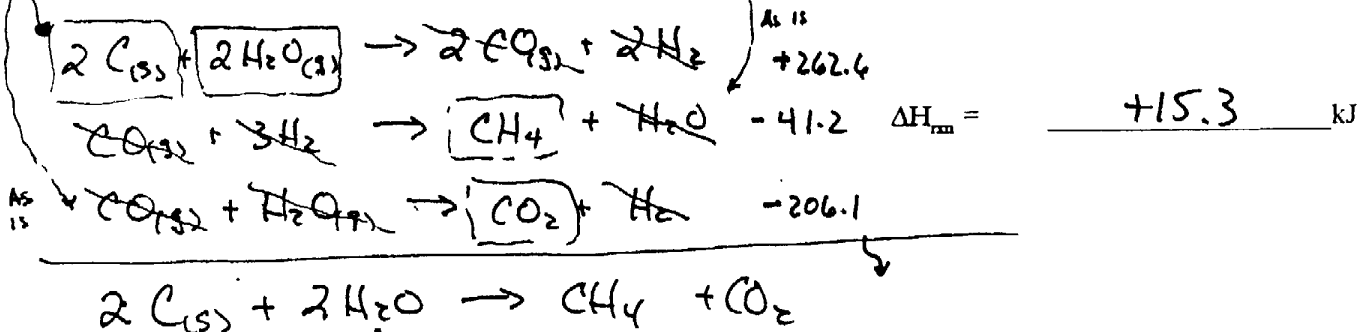 As is
2 C(s) + 2 H₂O(g) → 2 CO(g) + 2 H₂ +262.6
CO(g) + 3 H₂ → CH₄ + H₂O -41.2 ΔHrxn = +15.3 kJ
As is CO(g) + H₂O(g) → CO₂ + H₂ -206.1
2 C(s) + 2 H₂O → CH₄ + CO₂